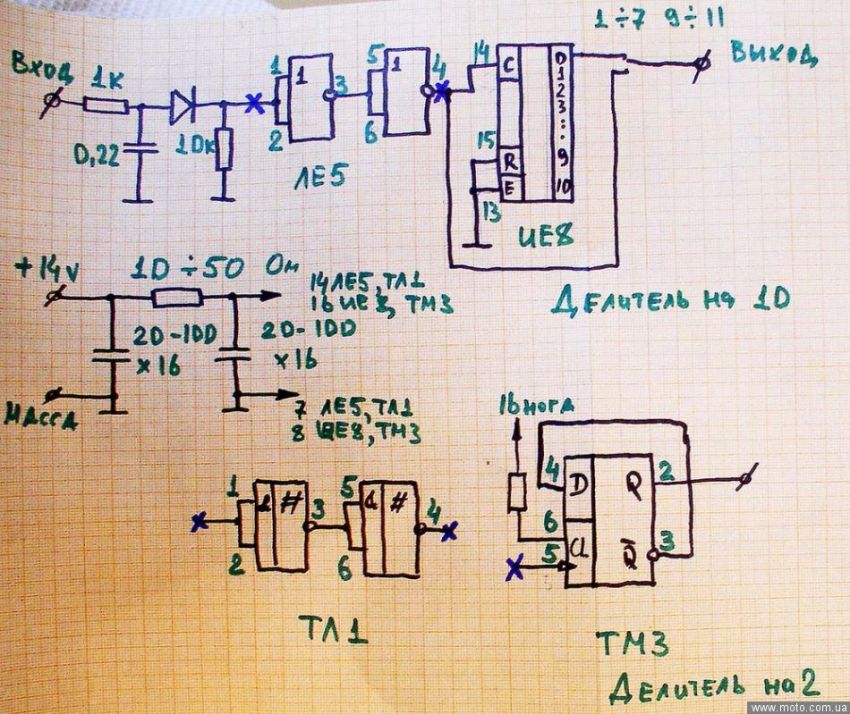 1÷7 9÷11
ВХОД
1К
1
2
1
3
5
6
1
4
14
C
0
1
2
3
:
:
9
10
ВЫХОД
0,22
10к
15
R
E
13
ЛЕ5
ИЕ8
+14V
10÷50 Ом
14 ЛЕ5, ТЛ1
16 ИЕ8, ТМ3
Делитель на 10
20-100
×16
20-100
×16
МАССА
7 ЛЕ5, ТЛ1
8 ИЕ8, ТМ3
16 нога
1
2
#
3
5
6
#
4
4
D
Q
2
6
5
CL
Q̅
3
ТЛ1
ТМ3
Делитель на 2
www.moto.com.ua